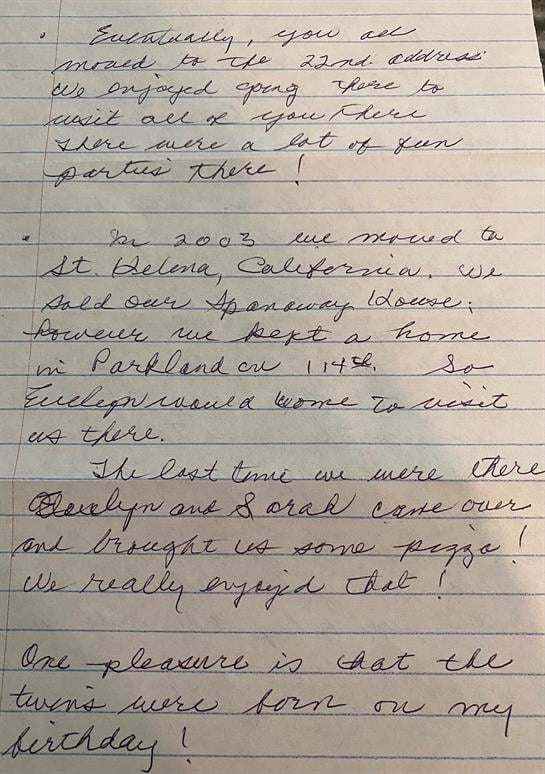 • Eventually, you all
moved to the 22nd. address.
We enjoyed going there to
visit all of you there
There were a lot of fun
parties there!
• In 2003 we moved to
St. Helena, California. We
sold our Spanaway House;
however we kept a home
in Parkland on 114th. So
Evelyn would come to visit
us there.
The last time we were there
Evelyn and Sarah came over
and brought us some pizza!
We really enjoyed that!
One pleasure is that the
twins were born on my
birthday!